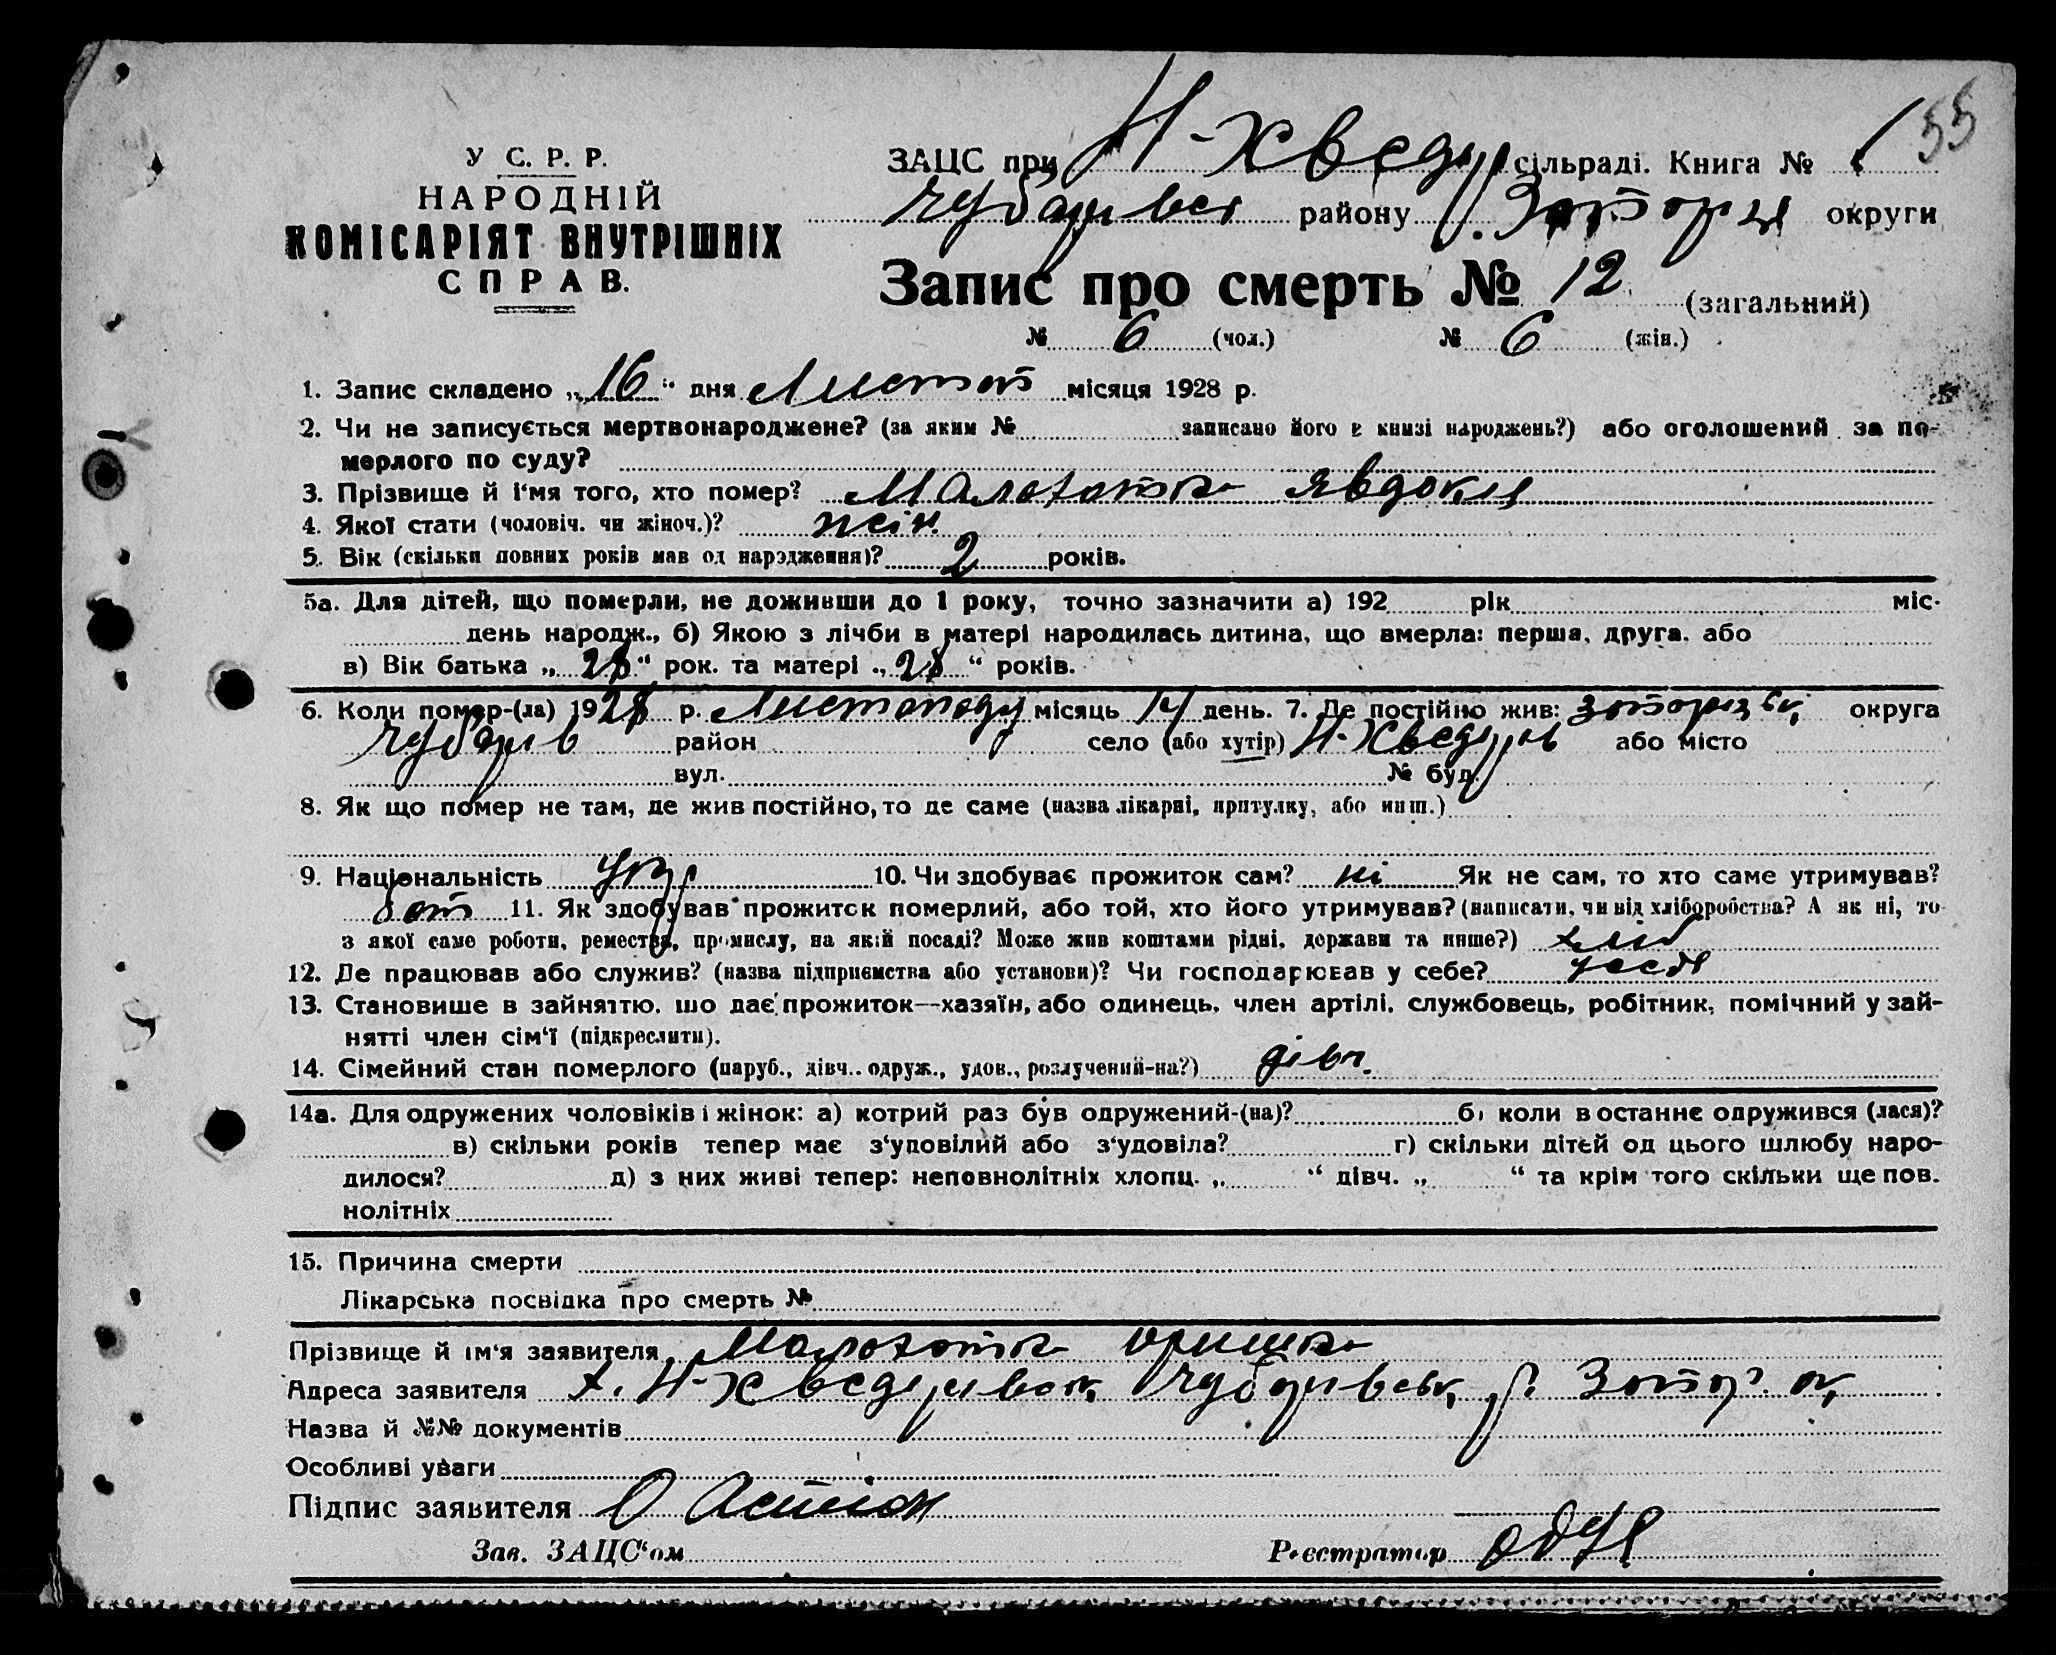 55
У С. Р. Р.
НАРОДНІЙ
КОМІСАРІЯТ ВНУТРІШНІХ
СПРАВ.
ЗАЦС при Н-Хведур сільраді. Книга № 1
Чубарівсь району Запоріз округи
Запис про смерть № 12 (загальний)
№ 6 (чол.) № 6 (жін.)
1. Запис складено „16“ дня Листоп місяця 1928 р.
2. Чи не записується мертвонароджене? (за яким № записано його в книзі народжень?) або оголошений за по-
мерлого по суду?
3. Прізвище й і'мя того, хто помер? Малохатка Явдокія
4. Якої стати (чоловіч. чи жіноч.)? жін.
5. Вік (скільки повних років мав од народження)? 2 років.
5а. Для дітей, що померли, не доживши до 1 року, точно зазначити а) 192 рік міс.
день народж., б) Якою з лічби в матері народилась дитина, що вмерла: перша, друга. або
в) Вік батька „28“ рок. та матері „28“ років.
6. Коли помер-(ла) 1928 р. Листопаду місяць 14 день. 7. Де постійно жив: Запорізьк округа
Чубарів район село (або хутір) Н-Хведурів або місто
вул. № буд.
8. Як що помер не там, де жив постійно, то де саме (назва лікарні, притулку, або инш.)
9. Національність Укр 10. Чи здобуває прожиток сам? ні Як не сам, то хто саме утримував?
бат 11. Як здобував прожиток померлий, або той, хто його утримував? (написати, чи від хліборобства? А як ні, то
з якої саме роботи, ремества, промислу, на якій посаді? Може жив коштами рідні, держави та инше?) хліб
12. Де працював або служив? (назва підприємства або установи)? Чи господарював у себе? у себе
13. Становише в зайняттю, що дає прожиток—хазяїн, або одинець, член артілі, службовець, робітник, помічний у зай-
нятті член сім'ї (підкреслити).
14. Сімейний стан померлого (паруб., дівч.. одруж., удов., розлучений-на?) дівч.
14а. Для одружених чоловіків і жінок: а) котрий раз був одружений-(на)? б) коли в останнє одружився (лася)?
в) скільки років тепер має з'удовілий або з'удовіла? г) скільки дітей од цього шлюбу наро-
дилося? д) з них живі тепер: неповнолітніх хлопц. „ “ дівч. „ “ та крім того скільки ще пов.
нолітніх
15. Причина смерти
Лікарська посвідка про смерть №
Прізвище й ім'я заявителя Малохатка Оришка
Адреса заявителя х. Н-Хведурівськ Чубарівськ р. Запор. ок
Назва й №№ документів
Особливі уваги
Підпис заявителя
Зав. ЗАЦС'ом Реєстратор